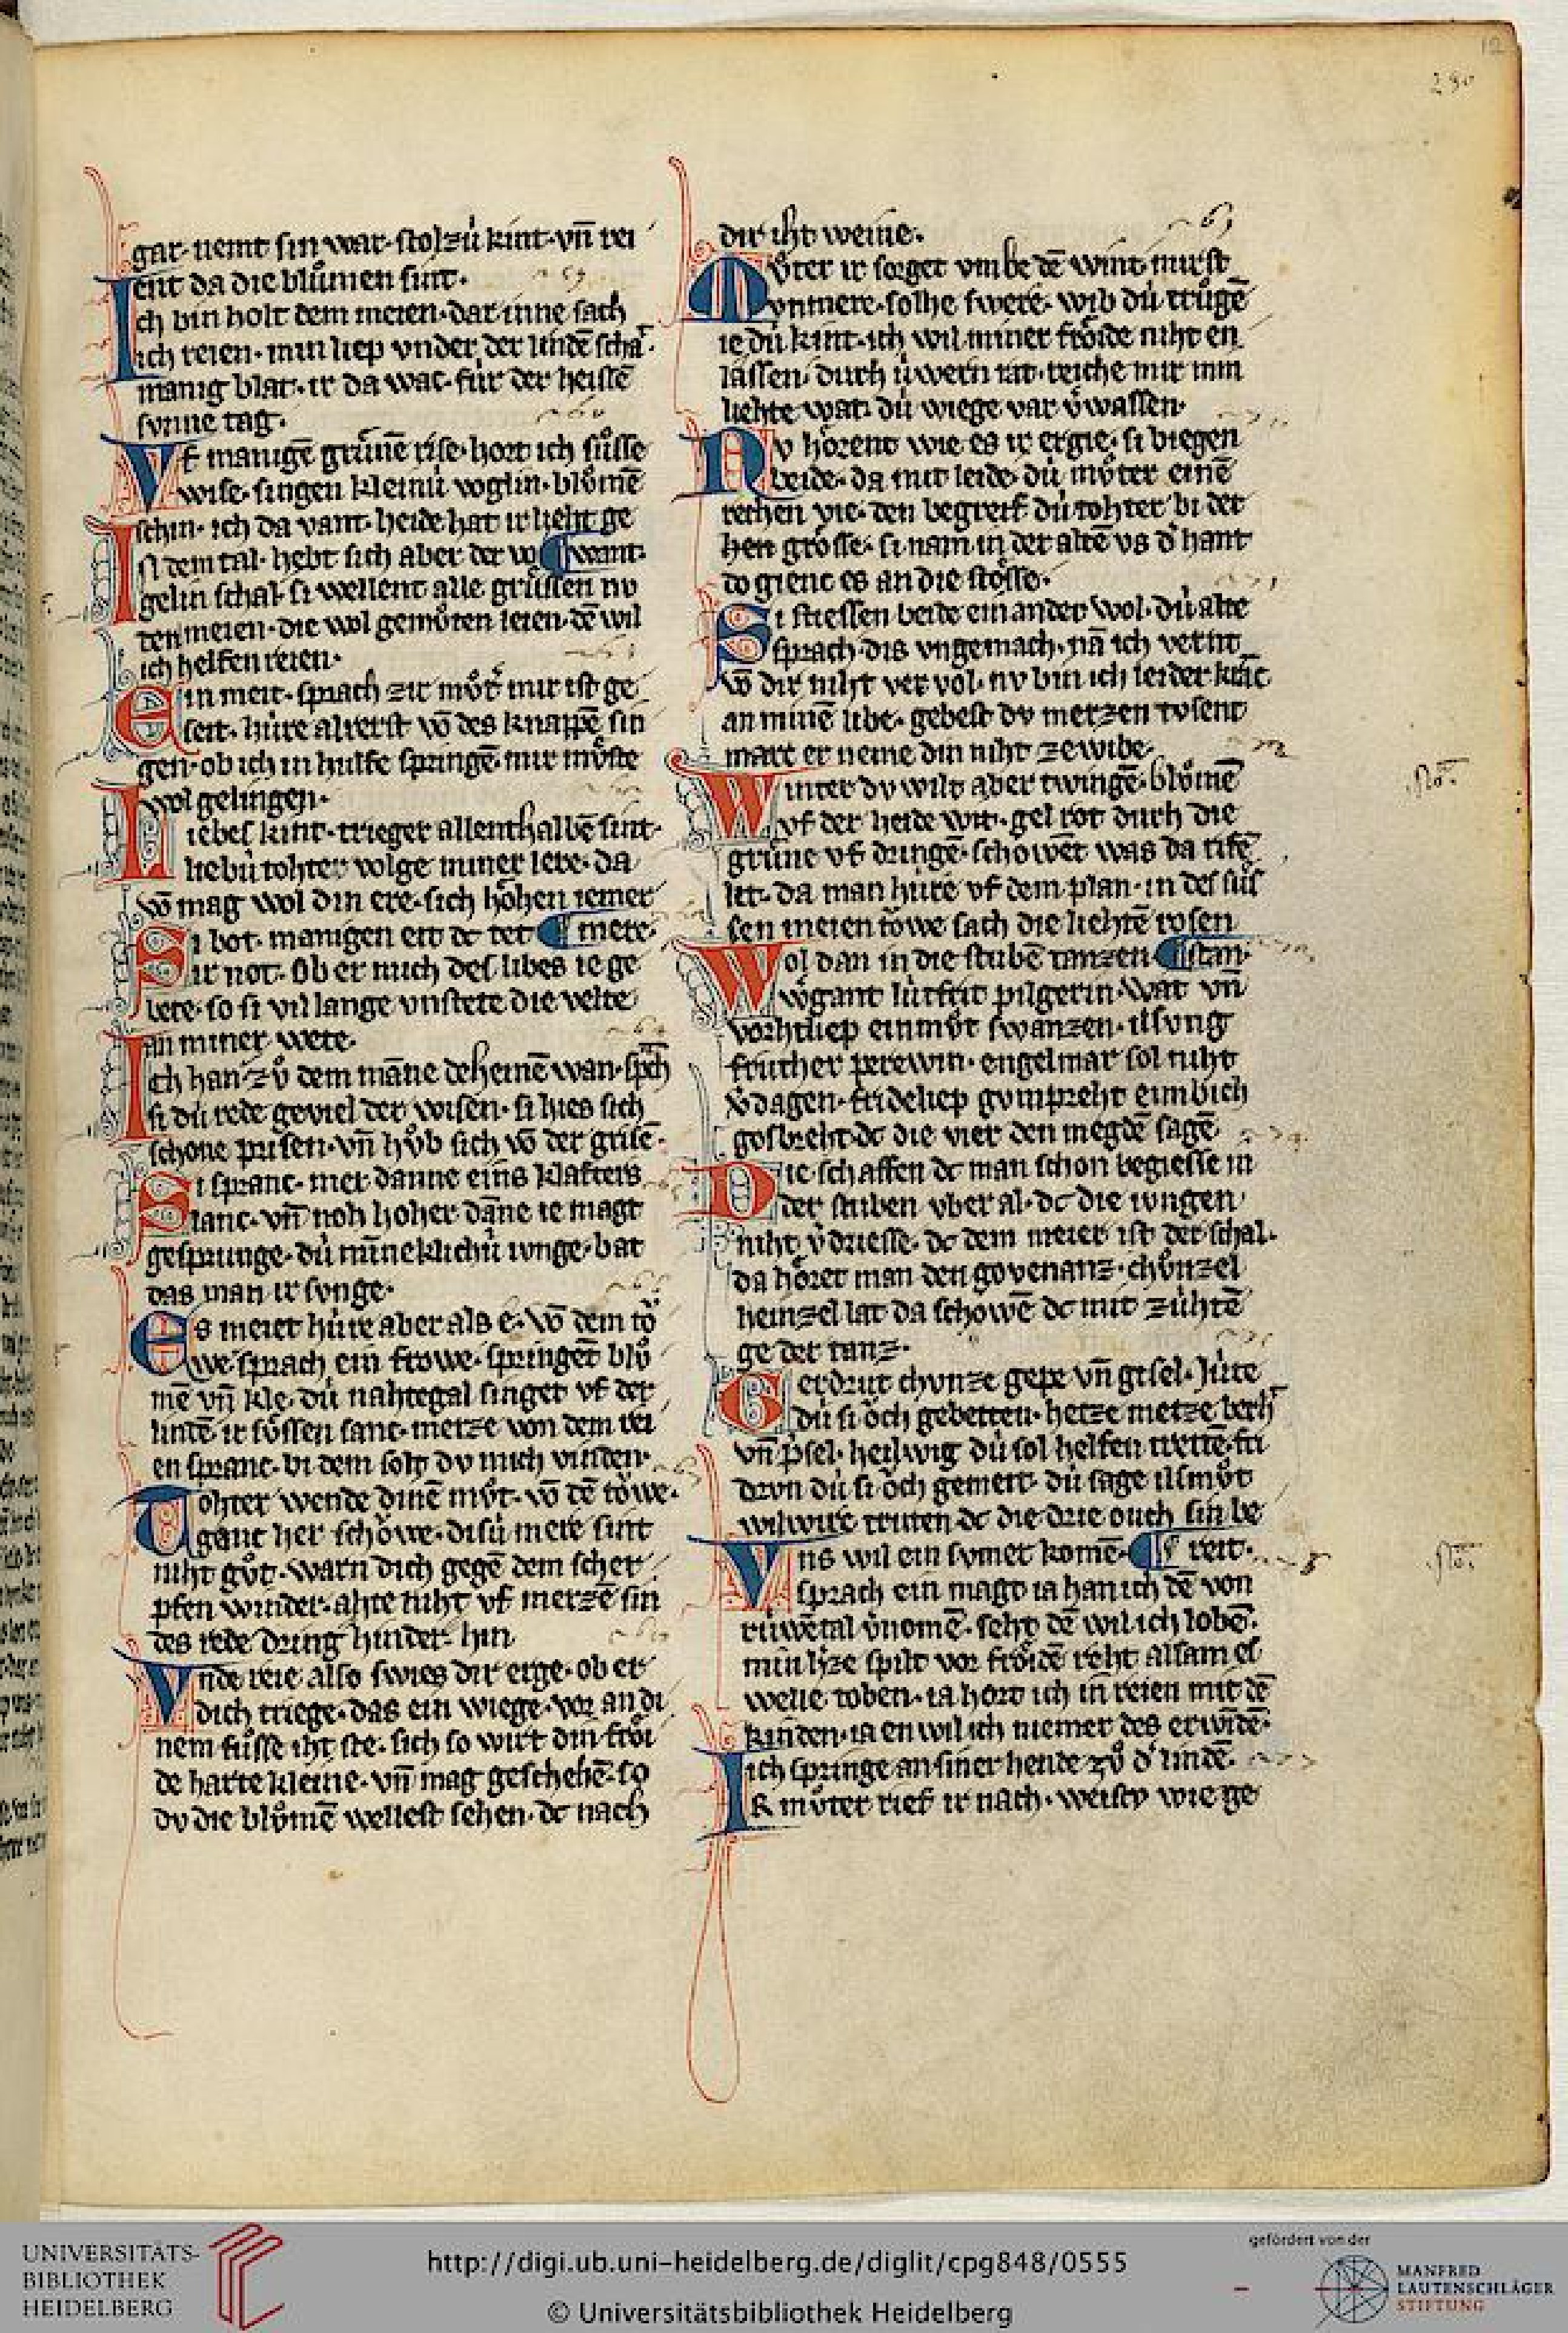 280
gar· nemt sin war· stolzú kint· vn̄ rei
ent da die blůmen sint·
Ich bin holt dem meien· dar inne sach
ich reien· min liep vnder der lindē schat·
manig blat· ir da wac· für der heissē
svnne tag·
Vf manigē grůnē rise· hort ich sůsse
wise· singen kleinú voglin· blůmē
schin· ich da vant· heide hat ir lieht ge
want·
In dem tal· hebt sich aber der vo
gelin schal· si wellent alle grůssen nv
den meien· die wol gemůten leien· dē wil
ich helfen reien·
Ein meit· sprach zir můt̄ mir ist ge
seit· húre alrerst vō des knappē sin
gen· ob ich in hulfe springē· mir můste
wol gelingen·
Liebes kint· trieger allenthalbē sint·
liebú tohter volge miner lere· da
vō mag wol din ere· sich hőhen iemer
mere·
Si bot· manigen eit dc tet
ir not· Ob er mich des libes ie ge
bete· so si vil lange vnstete die velte
an miner wete·
Ich han zů dem māne deheinē wan· sp̄ch
si dú rede geviel der wisen· si lies sich
schone prisen· vn̄ hůb sich vō der grisē·
Si spranc· mer danne eins klafters
lanc· vn̄ noh hoher dāne ie magt
gesprunge· dú minneklichú iunge· bat
das man ir svnge·
Es meiet húre aber als e· vō dem tő
we sprach ein frowe· springēt blů
mē vn̄ kle· dú nahtegal singet vf der
lindē ir sůssen sanc· merze von dem rei
en spranc· bi dem solt dv mich vinden·
Tohter wende dinē můt· vō dē tőwe·
ganc her schőwe· disú mere sint
niht gůt· warn dich gegē dem scher
pfen winder· ahte niht vf merzē sin
des rede dring hinder hin·
Vnde reie also swies dir erge· ob er
dich triege· das ein wiege· vor an di
nem fůsse iht ste· sich so wirt din frői
de harte kleine· vn̄ mag geschehē· so
dv die blůmē wellest sehen· dc nach
dir iht weine·
Můter ir sorget vmbe dē wint· mir st
vnmere· solhe swere· wib dú trůgē
ie dú kint· ich wil miner frőide niht en
lassen· durh úwern rat· reiche mir min
liehte wat· dú wiege var v̓wassen·
Nv hőrent wie es ir ergie· si biegen
beide· da mit leide· dú můter einē
rechen vie· den begreif dú tohter bi der
hen grősse· si nam in der altē vs d̓ hant
do gienc es an die stősse·
Si stiessen beide ein ander wol· dú alte
sprach· dis vngemach· nā ich vernt
vō dir niht ver vol· nv bin ich leider kranc
an minē libe· gebest dv merzen tvsent
marc er neme din niht ze wibe·
Winter dv wilt aber twingē· blůmē
vf der heide wit· gel rot durh die
grůne vf dringē· schowēt was da rifē
lit· da man húre vf dem plan· in des sůs
sen meien tőwe sach die liehtē rosen
stan·
Wol dan in die stubē tanzen
wőgant lútfrit pilgerin· wat vn̄
vorhtliep einmůt swanzen· ilsvng
fruther perewin· engelmar sol niht
v̓dagen· frideliep gvmpreht eimbich
gosbreht· dc die vier den megdē sagē·
Die schaffen dc man schon begiesse in
der stuben vber al· dc die ivngen
niht v̓driesse· dc dem meier ist der schal·
da hőret man den govenanz· chůnzel
heinzel lat da schowē dc mit zúhtē
ge der tanz·
Gerdrut chvnze gepe vn̄ gisel· Júte
dú si őch gebetten· hetze metze berh̄
vn̄ p̓sel· heilwig dú sol helfen trettē· fri
drvn dú si őch gemeit· dú sage ilsmůt
wilwire truten dc die drie ouch sin be
reit·
Vns wil ein svmer komē·
sprach ein magt ia han ich dē von
rúwētal v̓nomē· seht dē wil ich lobē·
min h̓ze spilt vor frőidē reht alsam es
welle toben· ia hort ich in reien mit dē
kinden· ia en wil ich niemer des erwidē·
ich springe an siner hende zů d̓ lindē·
Ir můter rief ir nach· weistv wie ge
UNIVERSITÄTS-
BIBLIOTHEK
HEIDELBERG
http://digi.ub.uni-heidelberg.de/diglit/cpg848/0555
© Universitätsbibliothek Heidelberg
gefördert von der
MANFRED
LAUTENSCHLÄGER
STIFTUNG